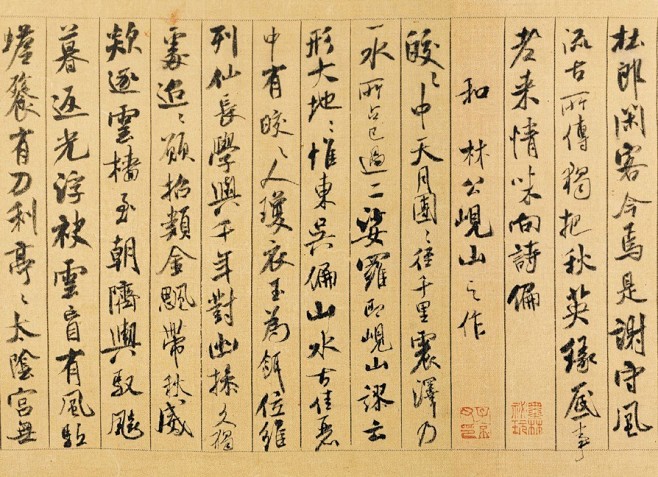 杜郎閑客今焉是謝守風
流古所傳獨把秋英緣底事
老来情味向詩偏
和林公峴山之作
皎〻中天月團〻径千里震澤乃
一水所占已過二娑羅即峴山謬云
形大地〻惟東吳偏山水古佳麗
中有皎〻人瓊衣玉為餌位維
列仙長學與千年對幽操久獨
處迢〻願招類金飔帶秋威
欻逐雲檣至朝隮輿馭飈
暮返光浮袂雲盲有風馹
蟾餮有刀利亭〻太陰宮無